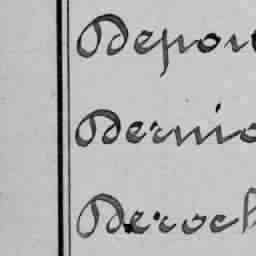 Depou
Dernio
Deroch